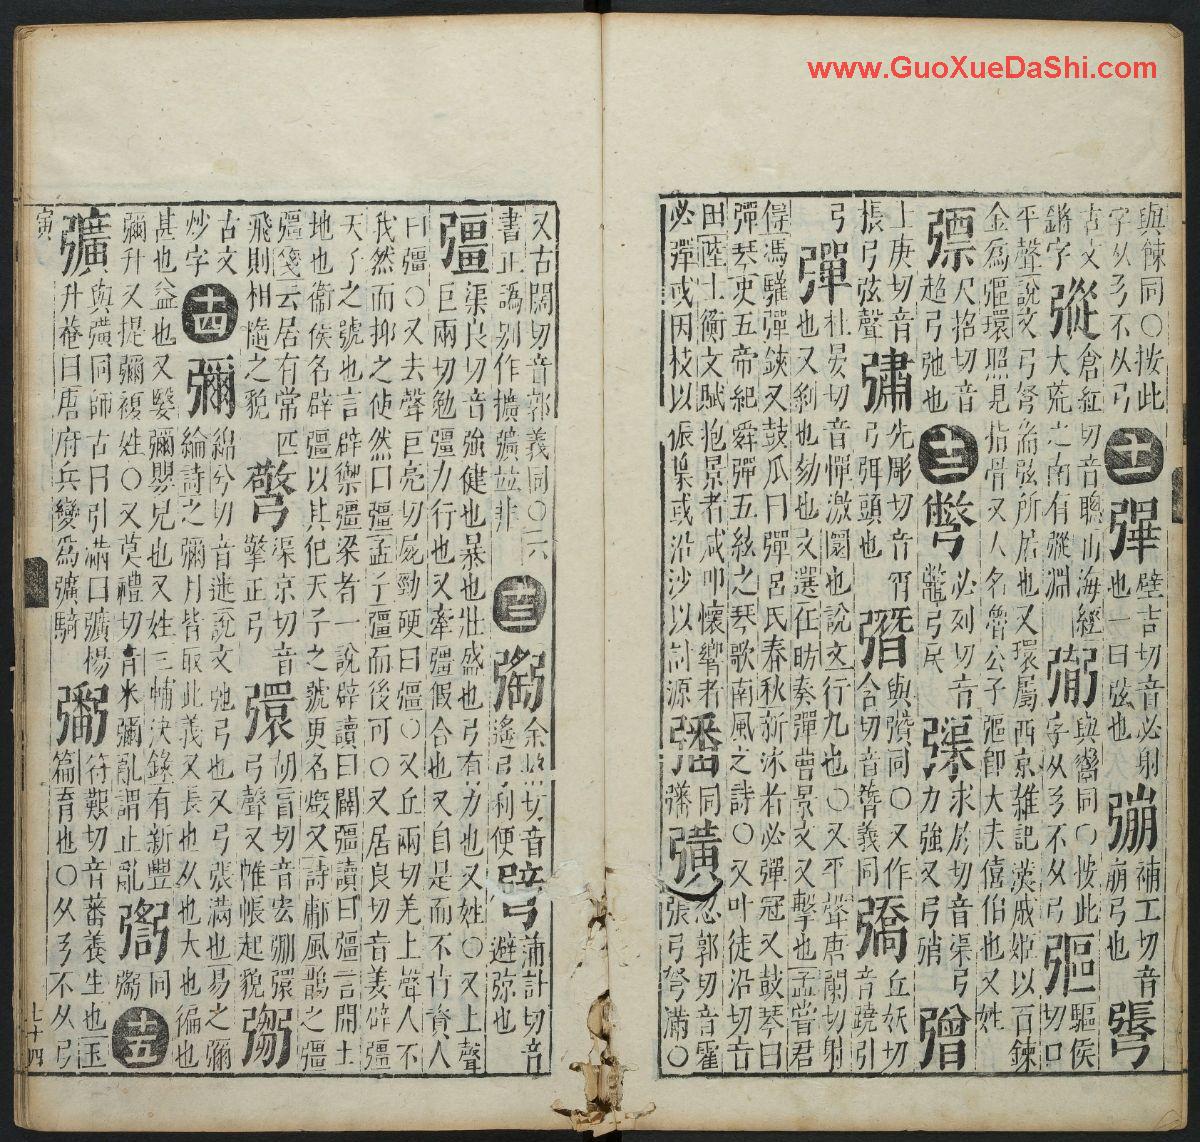 www.GuoXueDaShi.com
與餗同○按此
字从弓不从弓 十一 彃 壁吉切音必射
也一曰弦也 弸 補工切音
崩弓也 張
古文 㢔 倉紅切音聰山海經
大荒之南有㢔淵 與彎同○按此
字从弓不从弓 彄 驅侯
切口
平聲說文弓弩耑弦所居也又環屬西京雜記漢戚姬以百鍊
金爲彄環照見指骨又人名魯公子彄卽大夫僖伯也又姓
彯 尺招切音
超弓弛也 十二 必列切音
鼈弓戾 求於切音渠弓
力強又弓弰
上庚切音
張弓弦聲 彇 先彫切音宵
弓弭頭也 與朁同○又作
含切音簪義同 丘妖切
音蹺引
弓 彈 杜晏切音憚激圜也說文行丸也○又平聲唐闌切射
也又糾也劾也文選任昉奏彈曹景文又擊也孟嘗君
傳馮驩彈鋏又鼓瓜曰彈呂氏春秋新沐者必彈冠又鼓琴曰
彈琴史五帝紀舜彈五絃之琴歌南風之詩○又叶徒沿切音
田陸士衡文賦抱景者咸叩懷響者
必彈或因枝以振葉或沿沙以討源 同
藩 彉 忽郭切音霍
張弓弩滿○
又古闊切音郭義同○六
書正譌别作擴彍並非 十三 余招切音
遙弓利便 蒲計切音
避弥也
彊 渠良切音強健也暴也壯盛也弓有力也又姓○又上聲
巨兩切勉彊力行也又牽彊假合也又自是而不肯資人
曰彊○又去聲巨亮切屍勁硬曰彊○又丘兩切羌上聲人不
我然而抑之使然曰彊孟子彊而後可○又居良切音姜僻彊
天子之號也言辟禦彊梁者一說辟讀曰闢彊讀曰疆言開土
地也衞侯名辟彊以其犯天子之號更名燬又詩鄘風鶉之彊
彊箋云居有常匹
飛則相隨之貌 渠京切音
擎正弓 彋 胡盲切音宏弸彋
弓聲又帷帳起貌
古文
炒字 十四 彌 綿兮切音迷說文弛弓也又弓張滿也易之彌
綸詩之彌月皆取此義又長也从也大也徧也
甚也益也又嫛彌嬰兒也又姓三輔決錄有新豐
彌升又提彌複姓○又莫禮切音米彌亂謂止亂 同
鬻 十五
彍 與彉同師古曰引滿曰彍楊
升菴曰唐府兵變爲彍騎 符艱切音蕃養生也玉
篇育也○从弓不从弓
寅
七十四